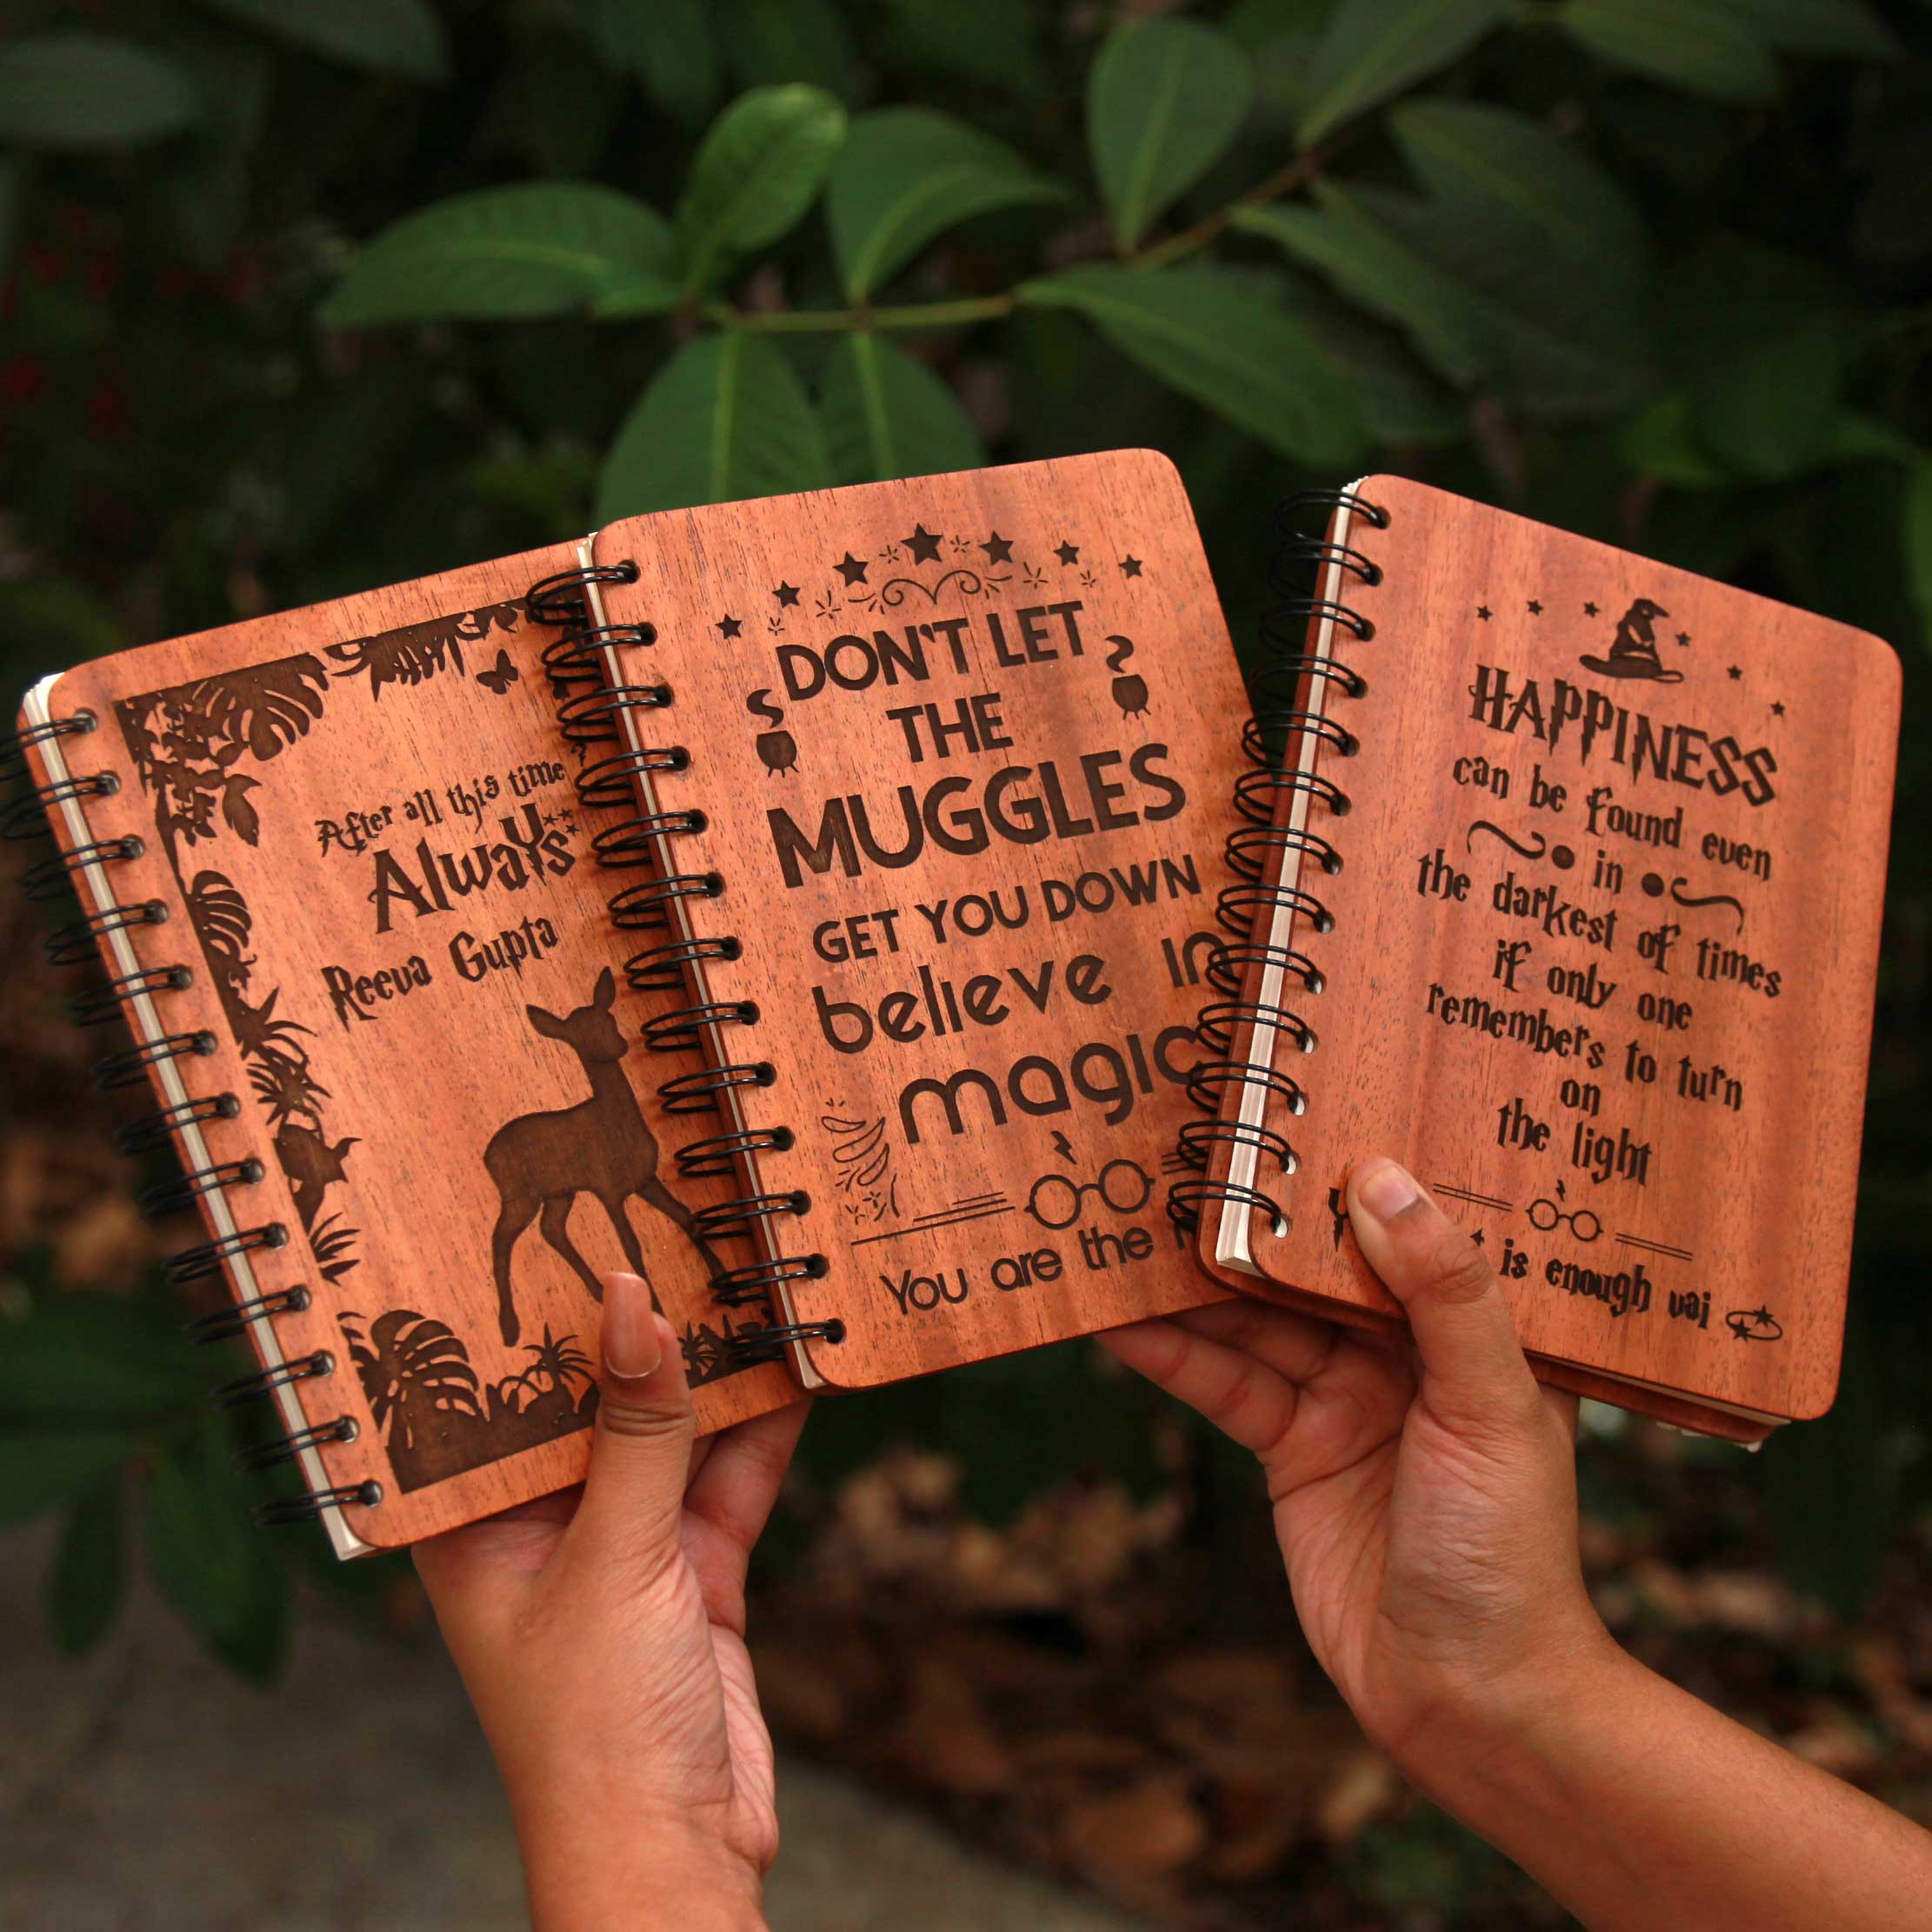 After all this time
Always
Reeva Gupta
DON'T LET
THE
MUGGLES
GET YOU DOWN
believe in
magic
You are the
HAPPINESS
can be found even
in
the darkest of times
if only one
remembers to turn
on
the light
is enough vaj